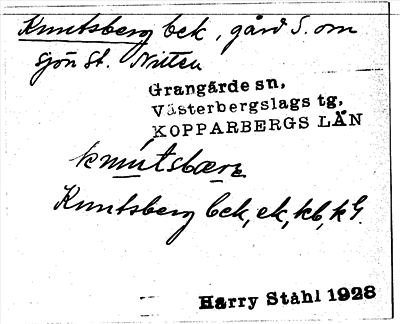 Knutsberg bek, gård S. om
sjön St. Nitten
Grangärde sn,
Västerbergslags tg,
KOPPARBERGS LÄN
knutsbærj
Knutsberg bek, ek, kb, kG.
Harry Ståhl 1928